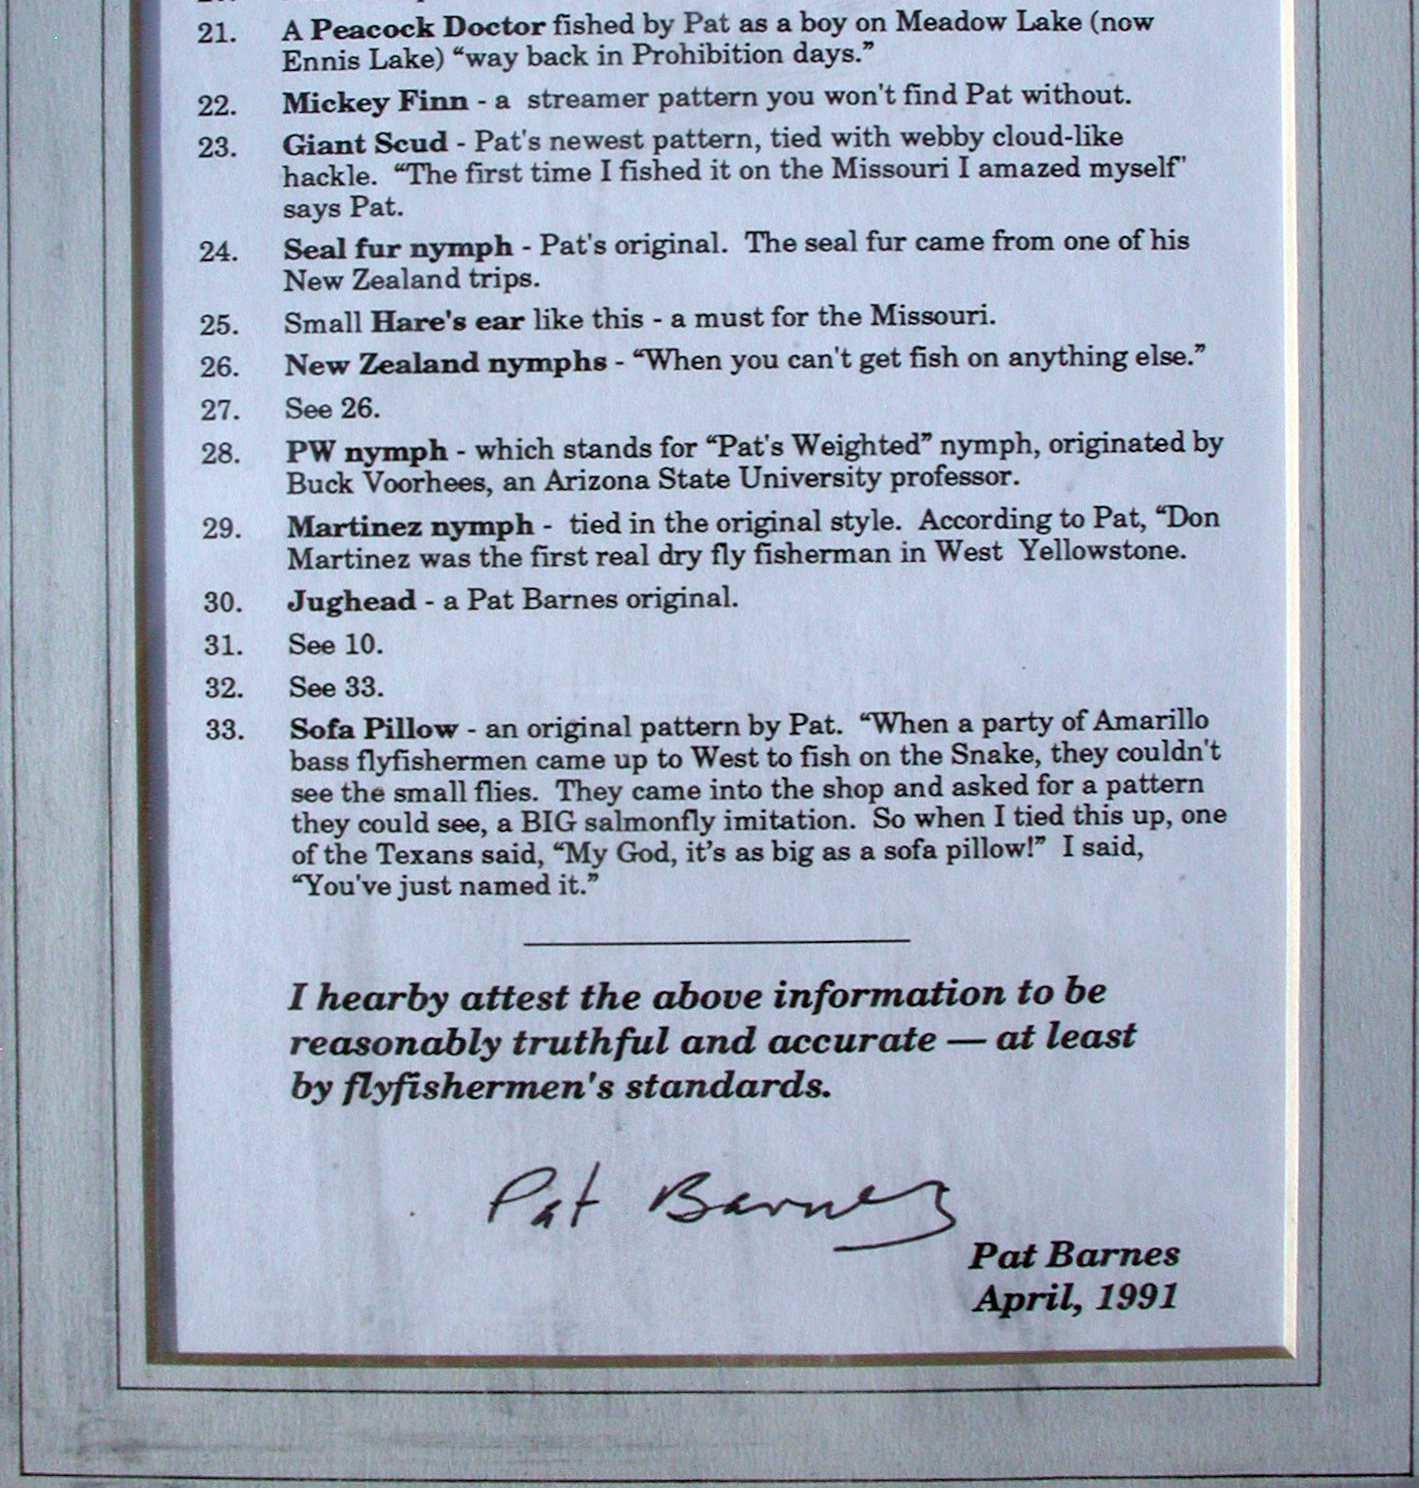 21. A Peacock Doctor fished by Pat as a boy on Meadow Lake (now
Ennis Lake) “way back in Prohibition days.”
22. Mickey Finn - a streamer pattern you won't find Pat without.
23. Giant Scud - Pat's newest pattern, tied with webby cloud-like
hackle. “The first time I fished it on the Missouri I amazed myself'
says Pat.
24. Seal fur nymph - Pat's original. The seal fur came from one of his
New Zealand trips.
25. Small Hare's ear like this - a must for the Missouri.
26. New Zealand nymphs - “When you can't get fish on anything else.”
27. See 26.
28. PW nymph - which stands for “Pat's Weighted” nymph, originated by
Buck Voorhees, an Arizona State University professor.
29. Martinez nymph - tied in the original style. According to Pat, “Don
Martinez was the first real dry fly fisherman in West Yellowstone.
30. Jughead - a Pat Barnes original.
31. See 10.
32. See 33.
33. Sofa Pillow - an original pattern by Pat. “When a party of Amarillo
bass flyfishermen came up to West to fish on the Snake, they couldn't
see the small flies. They came into the shop and asked for a pattern
they could see, a BIG salmonfly imitation. So when I tied this up, one
of the Texans said, “My God, it’s as big as a sofa pillow!” I said,
“You've just named it.”
I hearby attest the above information to be
reasonably truthful and accurate — at least
by flyfishermen's standards.
Pat Barnes
Pat Barnes
April, 1991